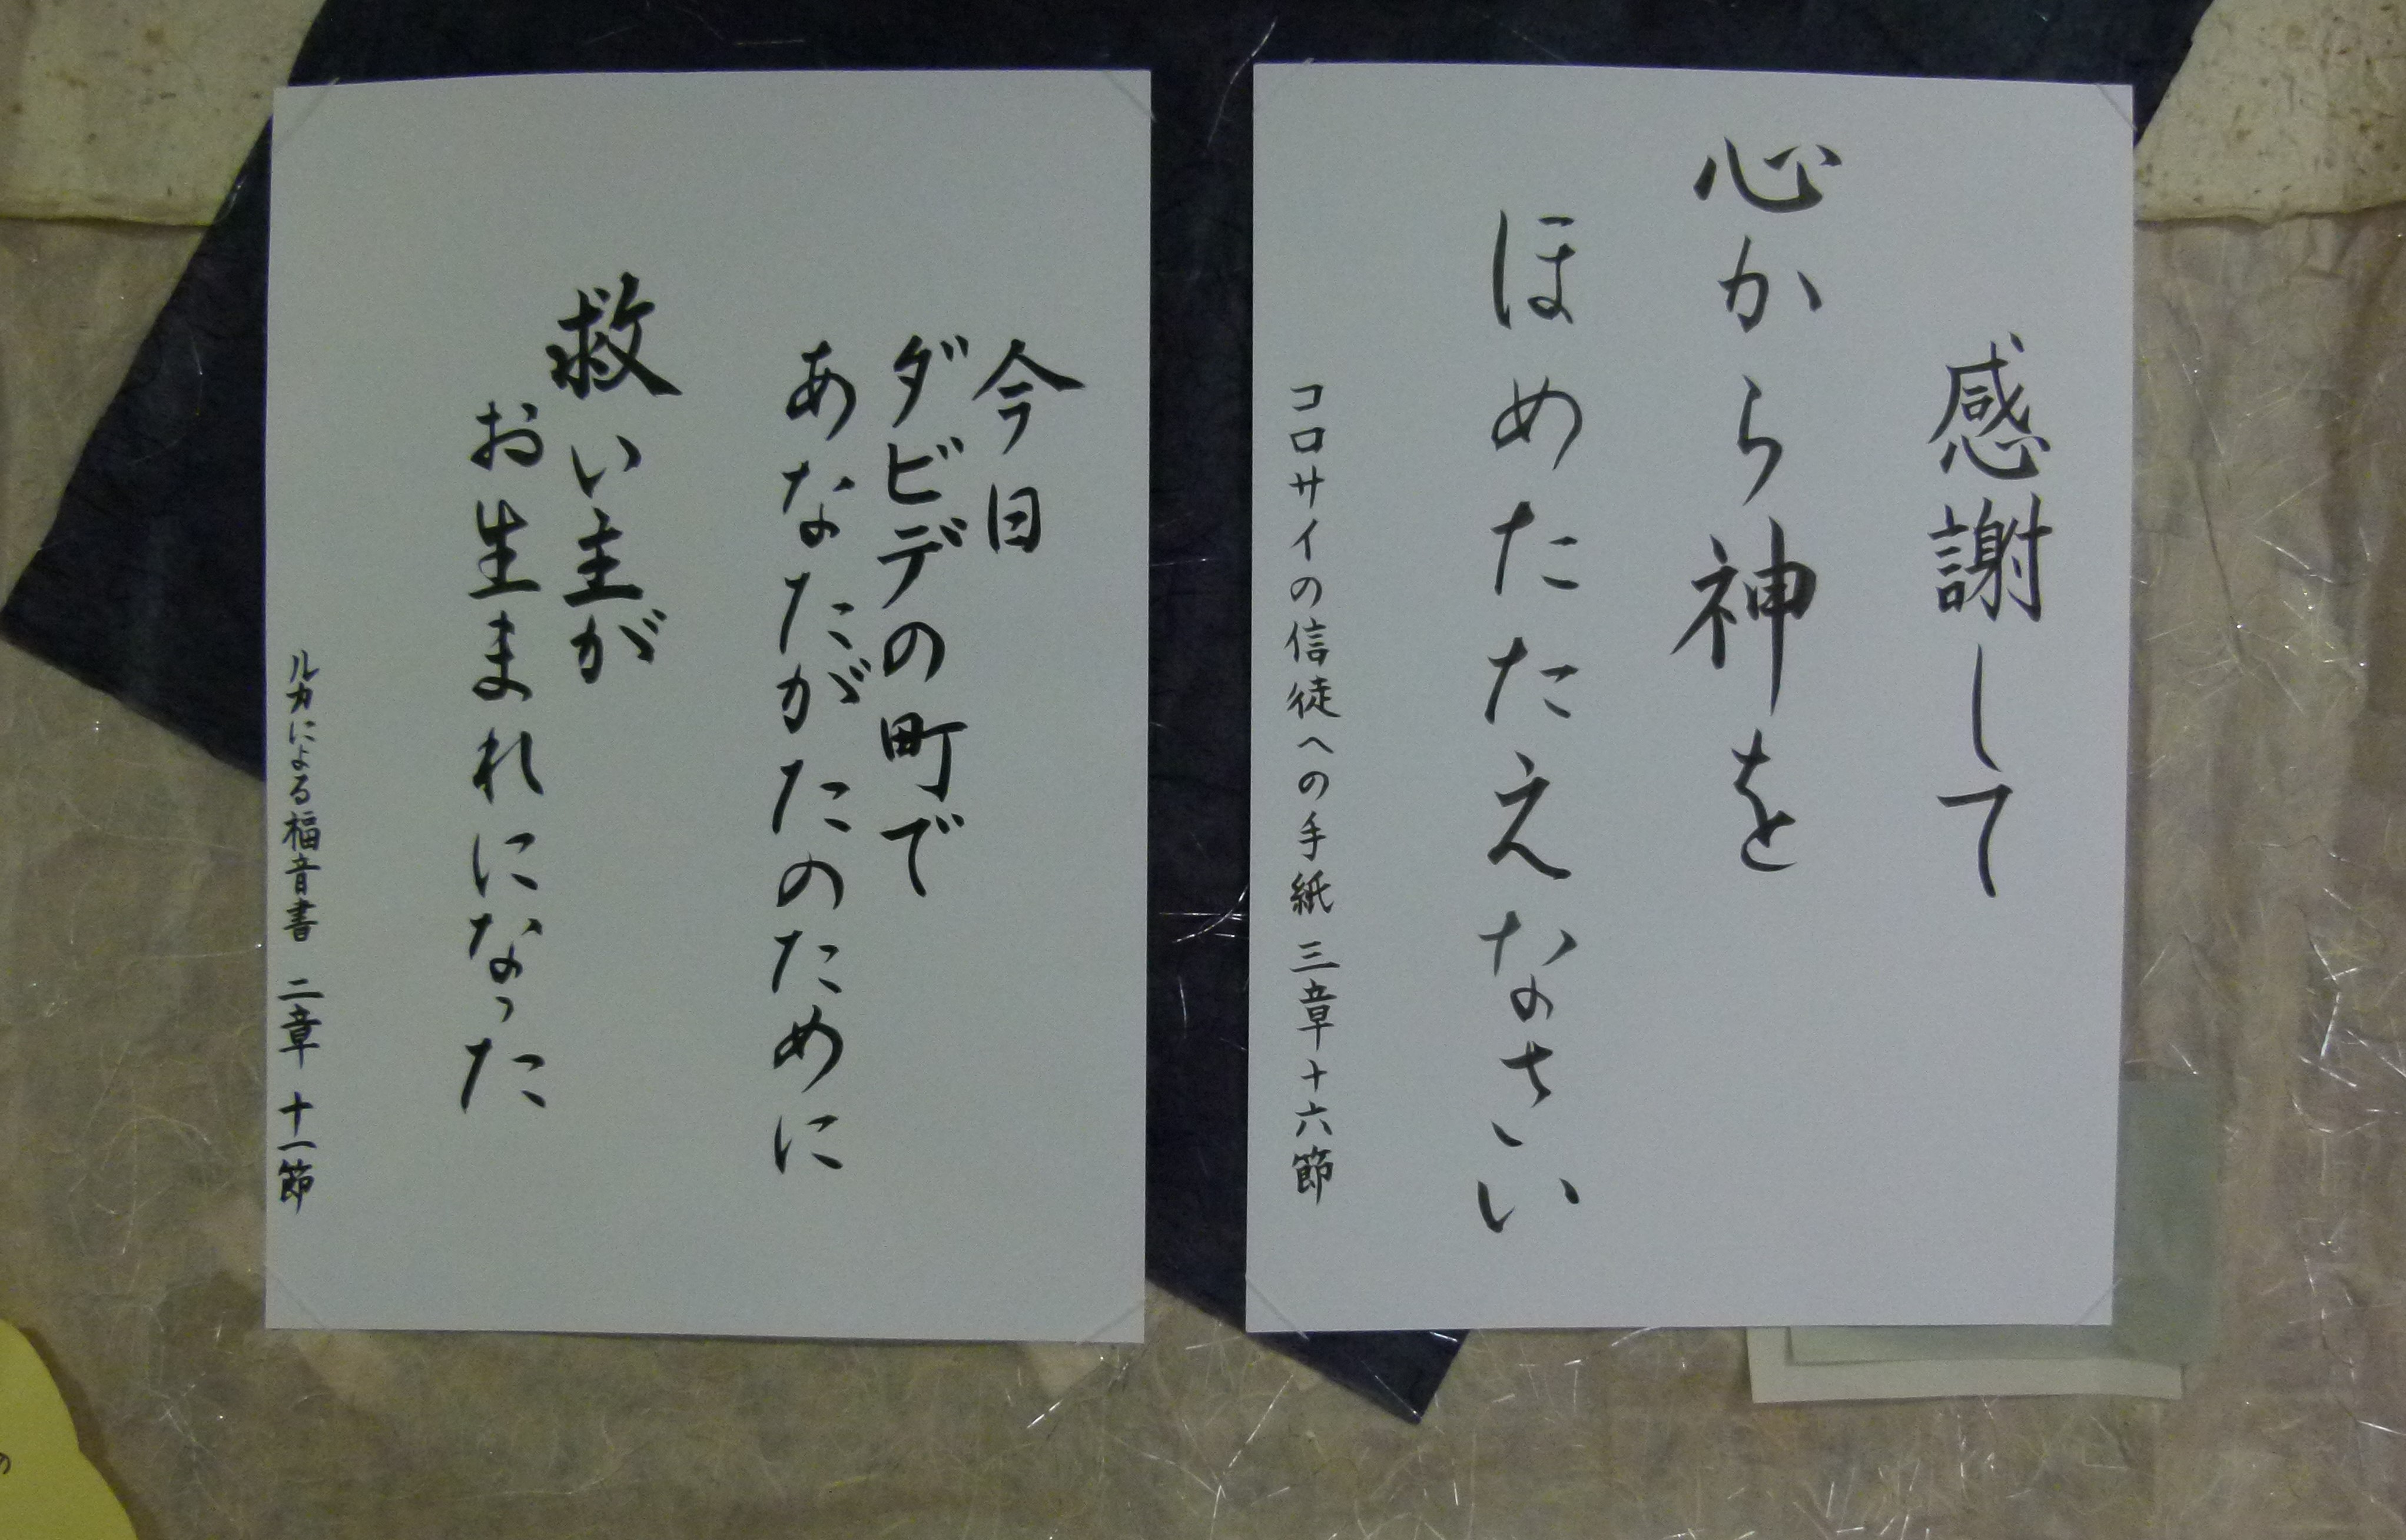 感謝して
心から神を
ほめたたえなさい
コロサイの信徒への手紙 三章十六節
今日
ダビデの町で
あなたがたのために
救い主が
お生まれになった
ルカによる福音書 二章 十一節
の